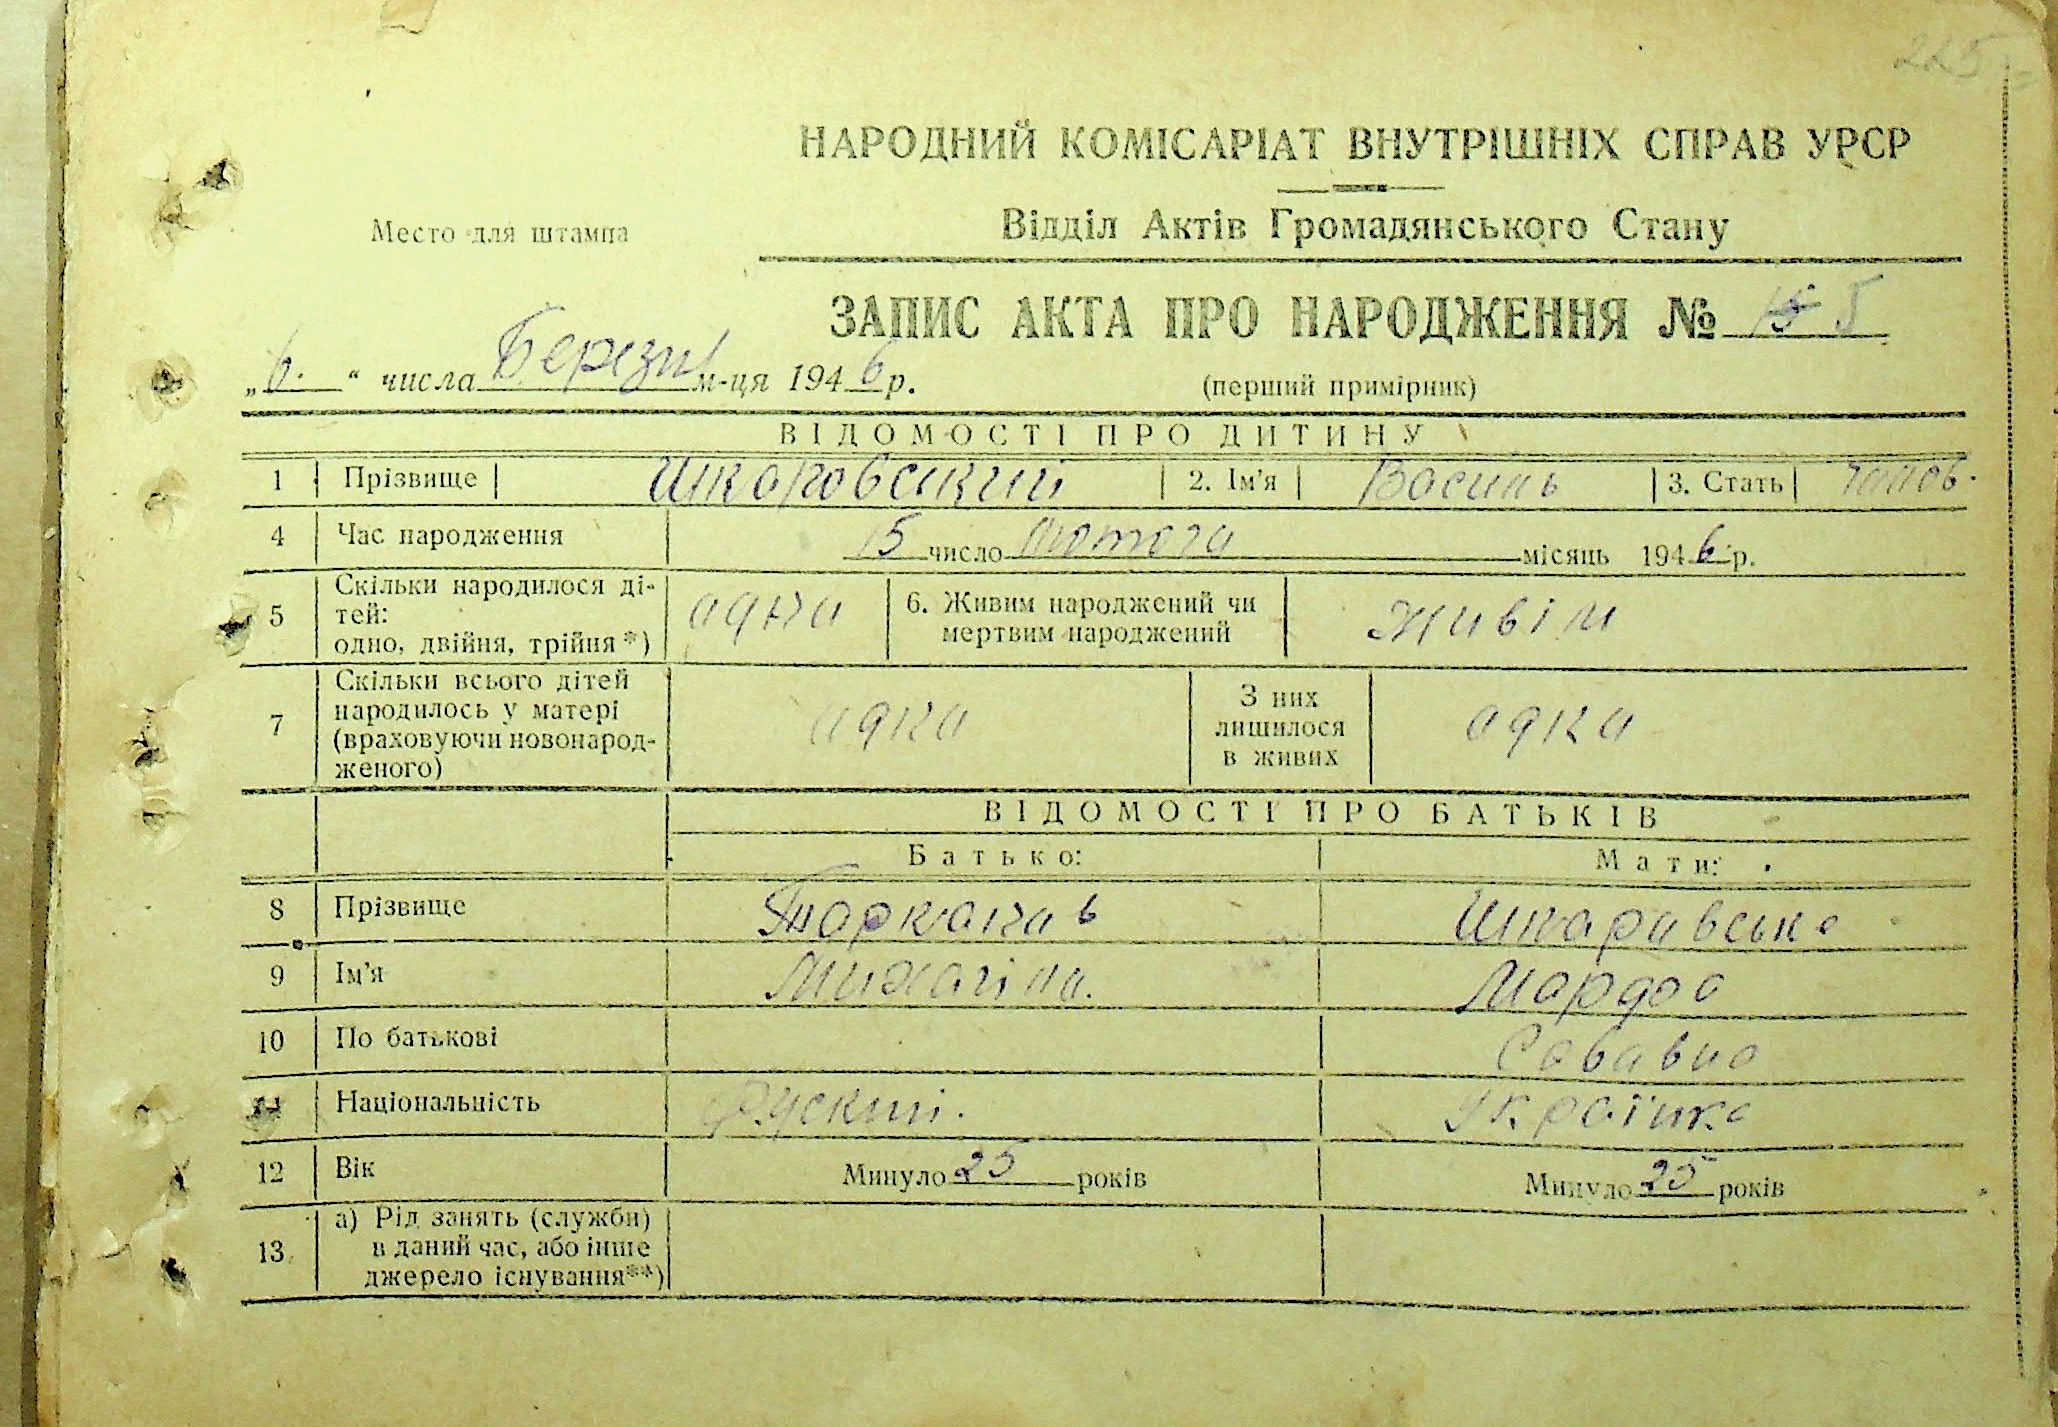 225
НАРОДНИЙ КОМІСАРІАТ ВНУТРІШНІХ СПРАВ УРСР
Место для штампа
Відділ Актів Громадянського Стану
ЗАПИС АКТА ПРО НАРОДЖЕННЯ № 5
„6.“ числа Березня м-ця 1946 р.
(перший примірник)
ВІДОМОСТІ ПРО ДИТИНУ
1 Прізвище Шкаровський 2. Ім'я Василь 3. Стать чолов.
4 Час народження 15 число лютога місяць 1946 р.
5 Скільки народилося ді-
тей:
одно, двійня, трійня*) адна 6. Живим народжений чи
мертвим народжений живім
7 Скільки всього дітей
народилось у матері
(враховуючи новонарод-
женого) адна З них
лишилося
в живих адна
ВІДОМОСТІ ПРО БАТЬКІВ
Батько: Мати:
8 Прізвище Шкаравська
9 Ім'я
10 По батькові Сававна
11 Національність Руский. Україика
12 Вік Минуло 25 років Минуло 25 років
13 а) Рід занять (служби)
в даний час, або інше
джерело існування**)